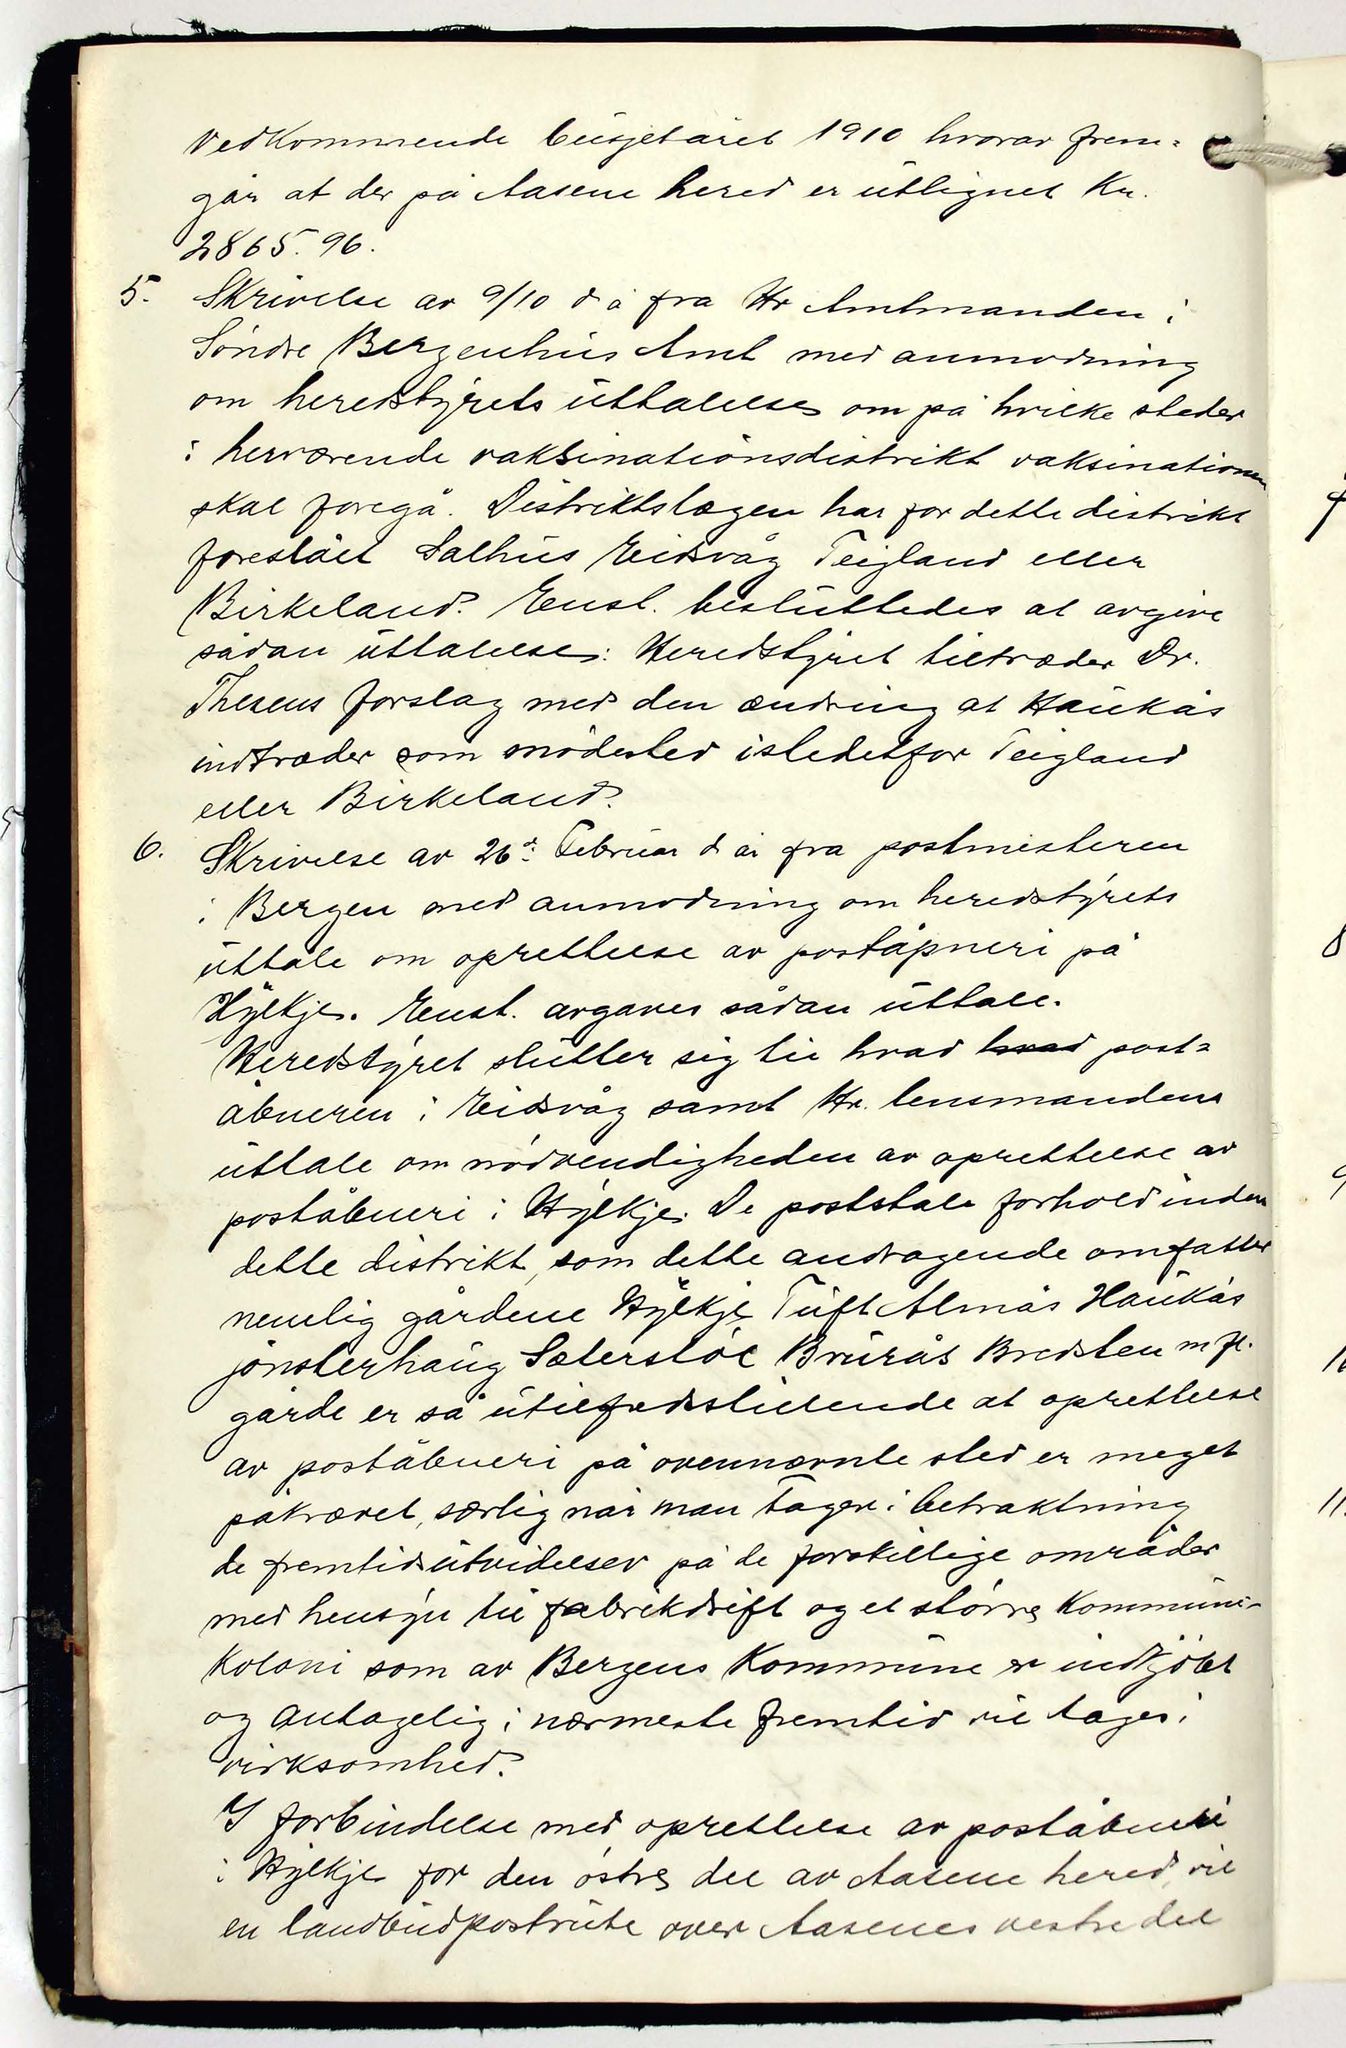 vedkommende busjetåret 1910 hvorav frem=
går at der på Aasene hered er utlignet Kr.
2865.96.
5. Skrivelse av 9/10 d å fra Hr Amtmanden i
Søndre Bergenhus Amt med anmodning
om heredstyrets uttalelse om på hvilke steder
i herværende vaksinationsdistrikt vaksinationen
skal foregå. Distriktslægen har for dette distrikt
foreslået Salhus Eidsvåg Teigland eller
Birkeland. Enst. besluttedes at avgive
sådan uttalelse: Heredstyret tiltræder Dr.
Thesens forslag med den ændring at Haukås
indtræder som mødested istedetfor Teigland
eller Birkeland.
6. Skrivelse av 26d: Februar d år fra postmesteren
i Bergen med anmodning om heredstyrets
uttale om oprettelse av poståpneri på
Hylkje. Enst. avgaves sådan uttale.
Heredstyret slutter sig til hvad hvad post=
åbneren i Eidsvåg samt Hr. lensmandens
uttale om nødvendigheden av oprettelse av
poståbneri i Hylkje. De poststale forhold inden
dette distrikt, som dette andragende omfatter
nemlig gårdene Hylkje Tuft Almås Haukås
jønsterhaug Sæterstøl Brurås Bredsten m fl.
gårde er så utilfredsstilende at oprettelse
av poståbneri på ovennævnte sted er meget
påkrævet, særlig når man tager i betraktning
de fremtidsutvidelser på de forskillige områder
med hensyn til fabrikdrift og et større Kommune-
Koloni som av Bergens Kommune er indkjøbt
og antagelig i nærmeste fremtid vil tages i
virksomhed.
I forbindelse med oprettelse av poståbneri
i Hylkje for den østre del av Aasene hered, vil
en landbudpostrute over Aasenes vestre del